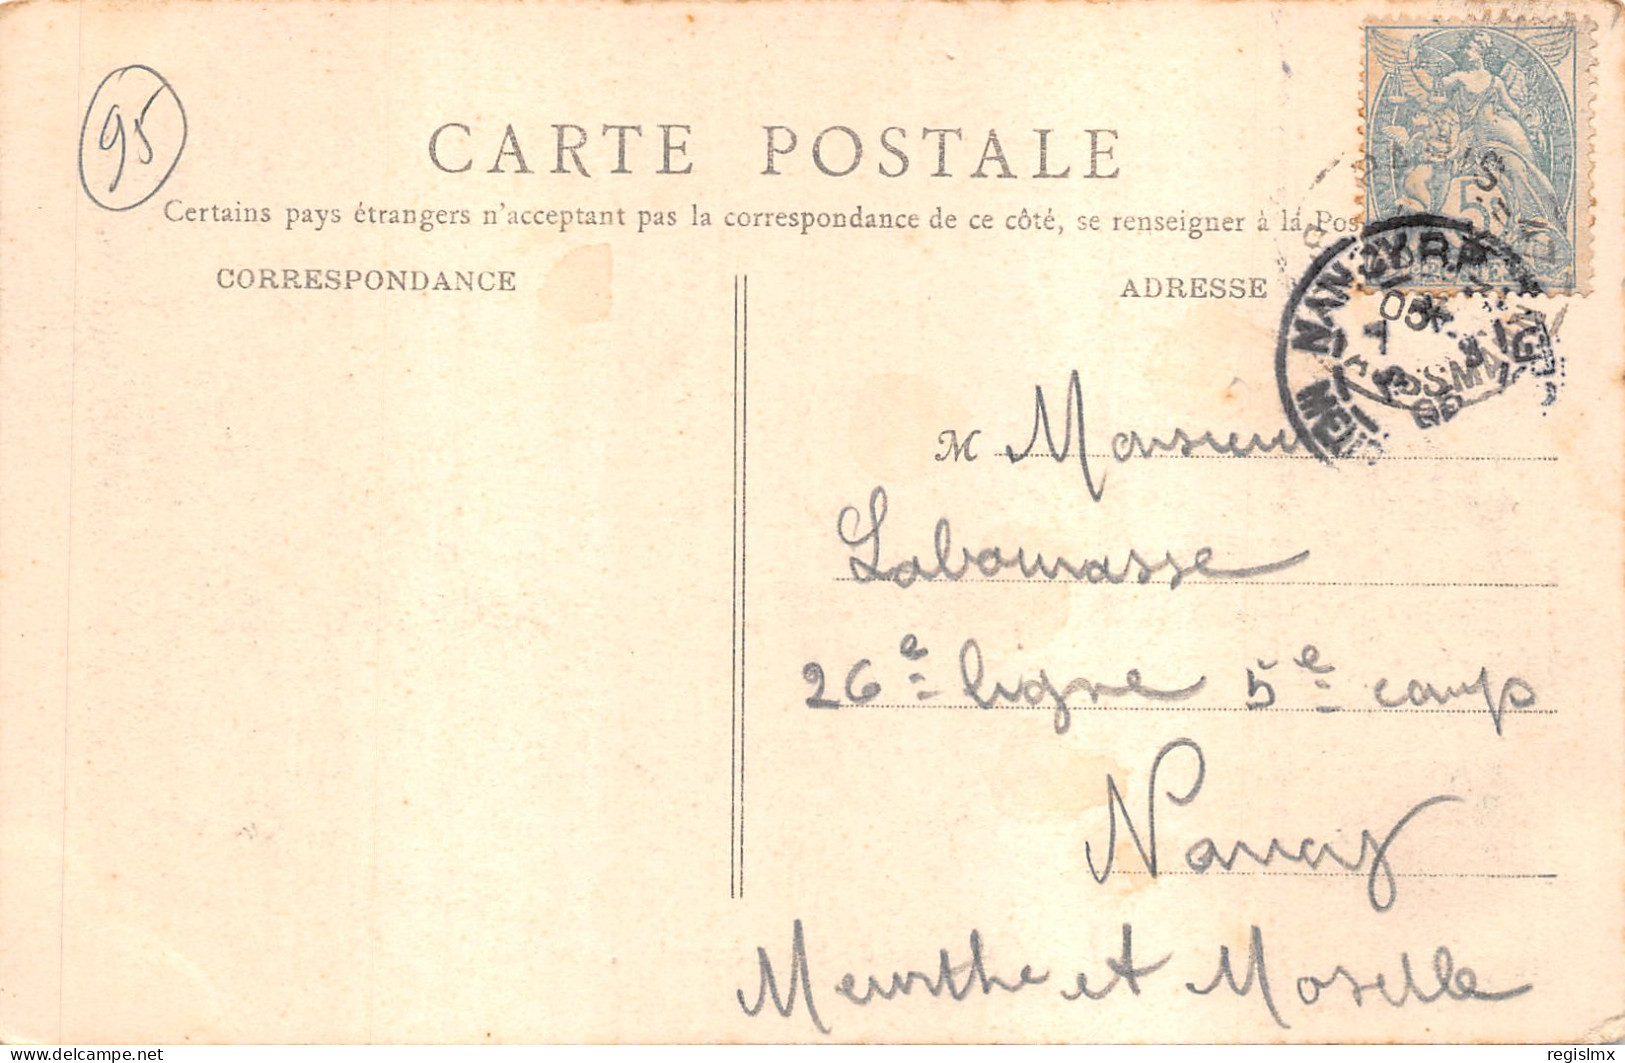 95
CARTE POSTALE
Certains pays étrangers n'acceptent pas la correspondance de ce côté, se renseigner à la Pos
CORRESPONDANCE
ADRESSE
M Monsieur
Labourasse
26e ligne 5e comp
Nancy
Meurthe et Moselle
5
NANCY
05
delcampe.net
regislmx